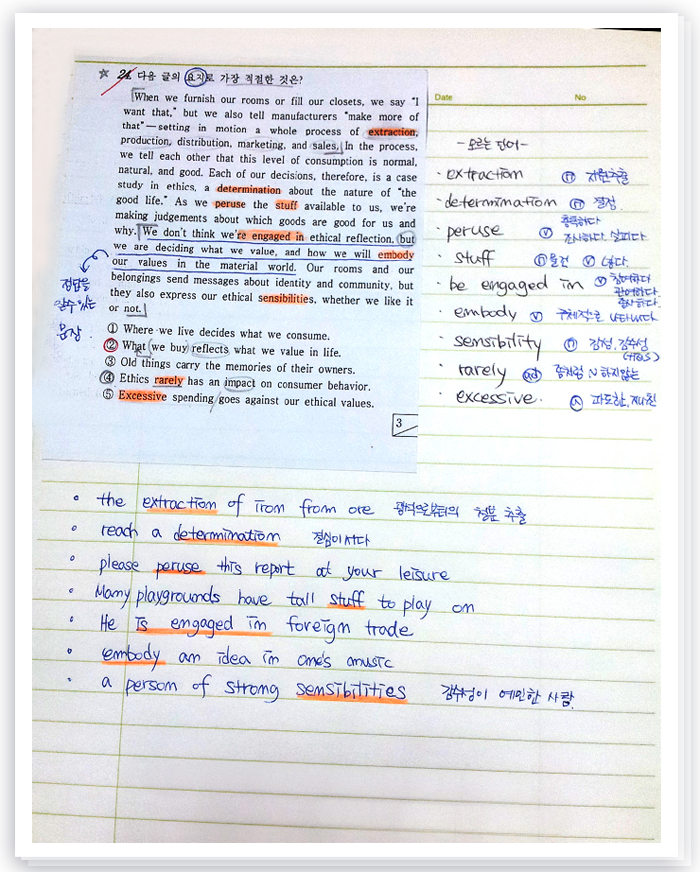 ☆ 24. 다음 글의 요지로 가장 적절한 것은?
When we furnish our rooms or fill our closets, we say "I
want that," but we also tell manufacturers "make more of
that"—setting in motion a whole process of extraction,
production, distribution, marketing, and sales. In the process,
we tell each other that this level of consumption is normal,
natural, and good. Each of our decisions, therefore, is a case
study in ethics, a determination about the nature of "the
good life." As we peruse the stuff available to us, we're
making judgements about which goods are good for us and
why. We don't think we're engaged in ethical reflection, but
we are deciding what we value, and how we will embody
our values in the material world. Our rooms and our
belongings send messages about identity and community, but
they also express our ethical sensibilities, whether we like it
or not.
정답을
알 수 있는
문장.
① Where we live decides what we consume.
② What we buy reflects what we value in life.
③ Old things carry the memories of their owners.
④ Ethics rarely has an impact on consumer behavior.
⑤ Excessive spending goes against our ethical values.
3
Date No
-모르는 단어-
· extraction ⓝ 자원추출
· determination ⓝ 결정
· peruse ⓥ 정독하다
조사하다, 살피다.
· stuff ⓝ 물건 ⓥ
· be engaged in ⓥ 참여하다
관여하다
종사하다.
· embody ⓥ 구체적으로 나타내다.
· sensibility ⓝ 감성, 감수성
· rarely ad 좀처럼 ~하지않는
· excessive. ⓐ 과도한, 지나친
• the extraction of iron from ore 광석으로부터의 철분 추출
• reach a determination 결심이 서다
• please peruse this report at your leisure
• Many playgrounds have tall stuff to play on
• He is engaged in foreign trade
• embody an idea in one's music
• a person of strong sensibilities 감수성이 예민한 사람.